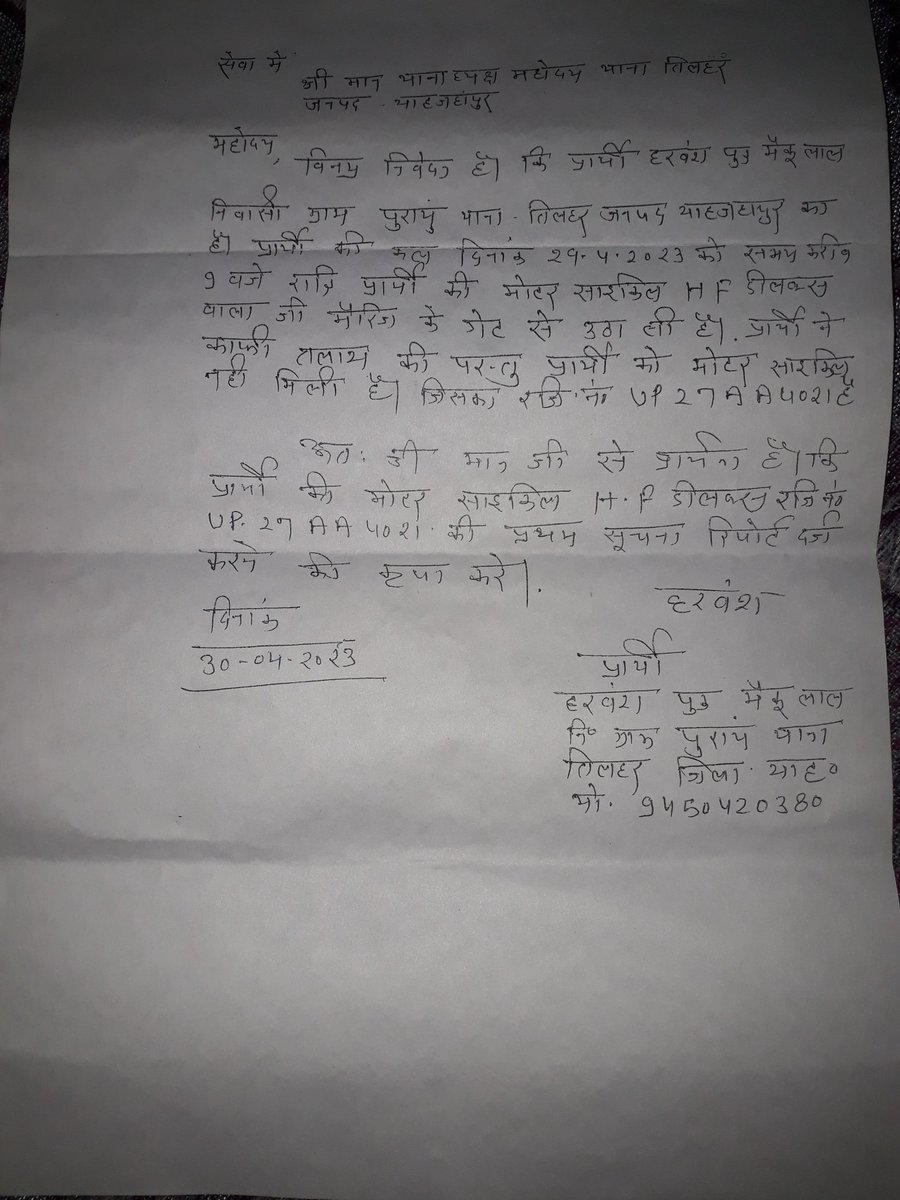 सेवा में
श्री मान थानाध्यक्ष महोदय थाना तिलहर
जनपद - शाहजहांपुर
महोदय,
विनम्र निवेदन है। कि प्रार्थी हरवंश पुत्र मैकू लाल
निवासी ग्राम पुरायूं थाना - तिलहर जनपद शाहजहांपुर का
है। प्रार्थी की कल दिनांक 29.4.2023 को समय करीब
9 वजे रात्रि प्रार्थी की मोटर साइकिल H F डीलक्स
वाला जी मैरिज के गेट से उठा ली है। प्रार्थी ने
काफी तलाश की परन्तु प्रार्थी को मोटर साइकिल
नही मिली है। जिसका रजि. नं UP 27 A A 4021 है
अतः श्री मान जी से प्रार्थना है। कि
प्रार्थी की मोटर साइकिल H.F डीलक्स रजि नं
UP. 27 A A 4021. की प्रथम सूचना रिपोर्ट दर्ज
करने की कृपा करे।
हरवंश
दिनांक
30-04-2023
प्रार्थी
हरवंश पुत्र मैकू लाल
नि० ग्राम पुरायूं थाना
तिलहर जिला - शाह०
मो. 9450420380